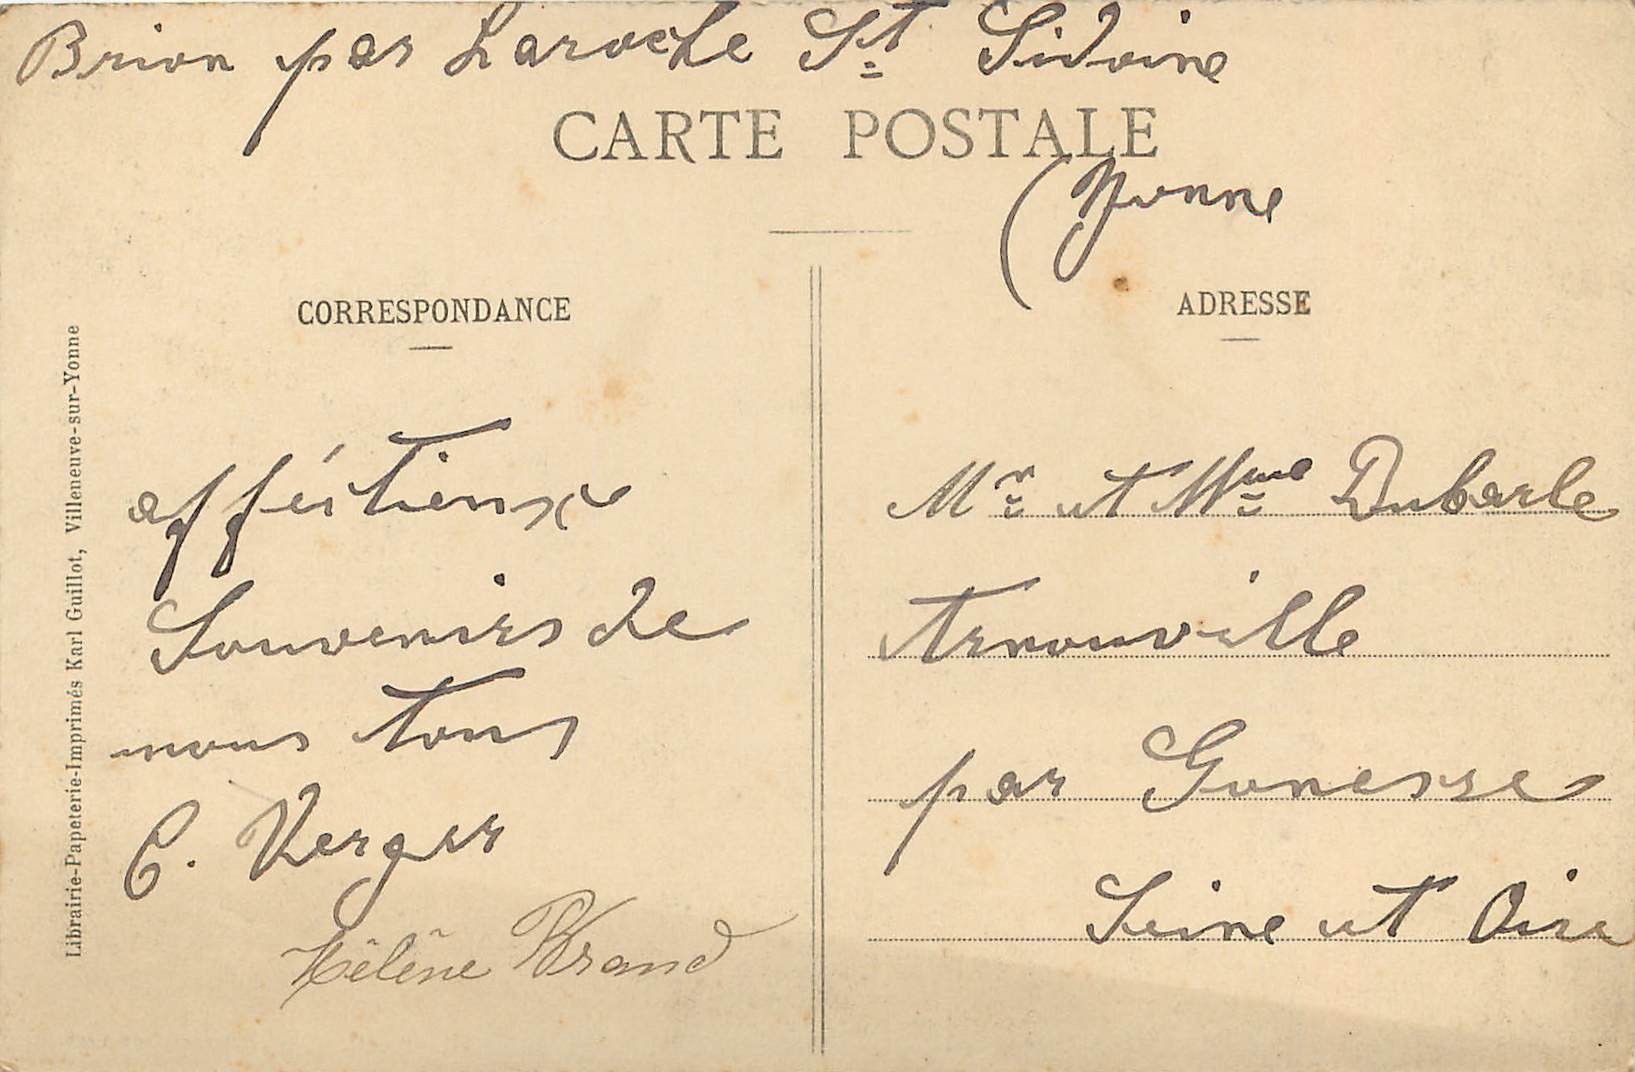 Brion par Laroche St Sidoine
CARTE POSTALE
(Yonne
CORRESPONDANCE
ADRESSE
afféctieux
Souvenirs de
nous tous
C. Verger
Hélène
Mr et Mme Dubarle
Arnouville
par Gonesse
Seine et Oise
Librairie-Papeterie-Imprimés Karl Guillot, Villeneuve-sur-Yonne